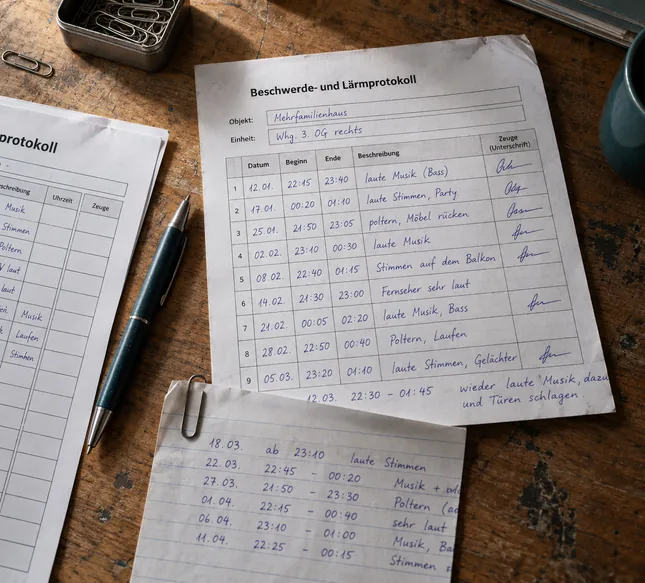 protokoll
schreibung Uhrzeit Zeuge
Musik
Stimmen
Poltern
laut
laut
Musik
Laufen
Stimmen
Beschwerde- und Lärmprotokoll
Objekt: Mehrfamilienhaus
Einheit: Whg. 3. OG rechts
Datum Beginn Ende Beschreibung Zeuge (Unterschrift)
1 12.01. 22:15 23:40 laute Musik (Bass)
2 17.01. 00:20 01:10 laute Stimmen, Party
3 25.01. 21:50 23:05 poltern, Möbel rücken
4 02.02. 23:10 00:30 laute Musik
5 08.02. 22:40 01:15 Stimmen auf dem Balkon
6 14.02. 21:30 23:00 Fernseher sehr laut
7 21.02. 00:05 02:20 laute Musik, Bass
8 28.02. 22:50 00:40 Poltern, Laufen
9 05.03. 23:20 01:10 laute Stimmen, Gelächter
12.03. 22:30 - 01:45 wieder laute Musik, dazu
und Türen schlagen
18.03. ab 23:10 laute Stimmen
22.03. 22:45 - 00:20 Musik +
27.03. 21:50 - 23:30 Poltern
01.04. 22:15 - 00:40 sehr laut
06.04. 23:10 - 01:00 Musik,
11.04. 22:25 - 00:15 Stimmen